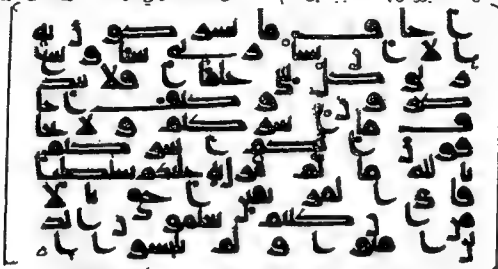 اخاف ما تشركون به
الا ان يشا ربي شيا وسع
ربي كل شي علما افلا تتذ
كرون وكيف اخا
ف ما اشركتم ولا تخا
فون انكم اشركتم
بالله ما لم ينزل به عليكم سلطنا
فاي الفريقين احق بالا
من ان كنتم تعلمون الذ
ين امنوا ولم يلبسوا ا